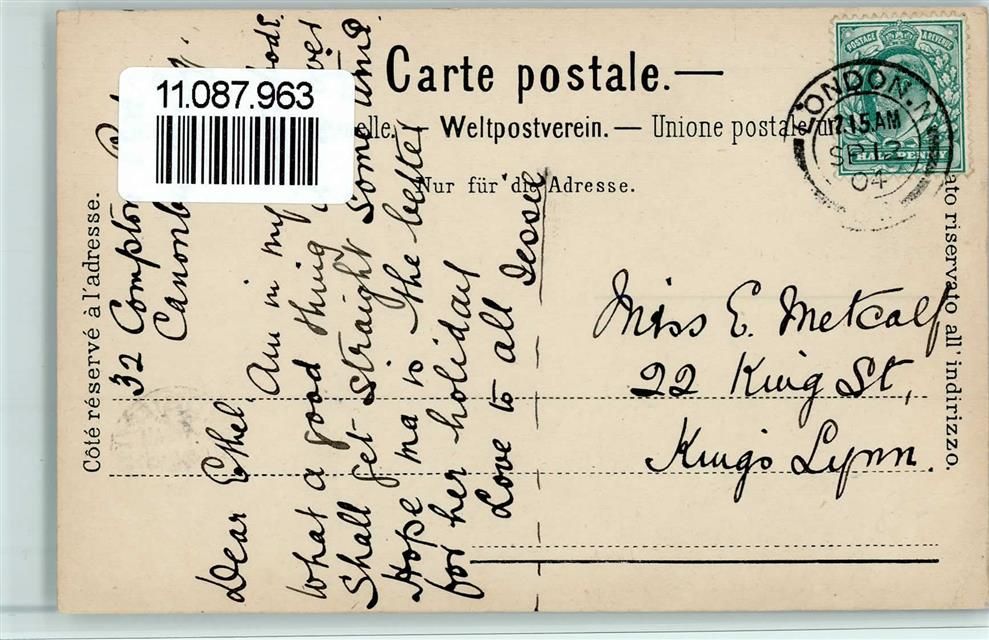 Carte postale.—
11.087.963
— Weltpostverein. — Unione postale
Nur für die Adresse.
Côté réservé à l'adresse.
riservato all'indirizzo.
POSTAGE & REVENUE
HALFPENNY
LONDON. N
12.15 AM
SP 12
04
32 Compton
Canonb
Dear Ethel. Am in my
What a good thing
Shall get straight some time.
Hope ma is the better
for her holiday
Love to all
Jessie
Miss E. Metcalf
22 King St,
Kings Lynn.